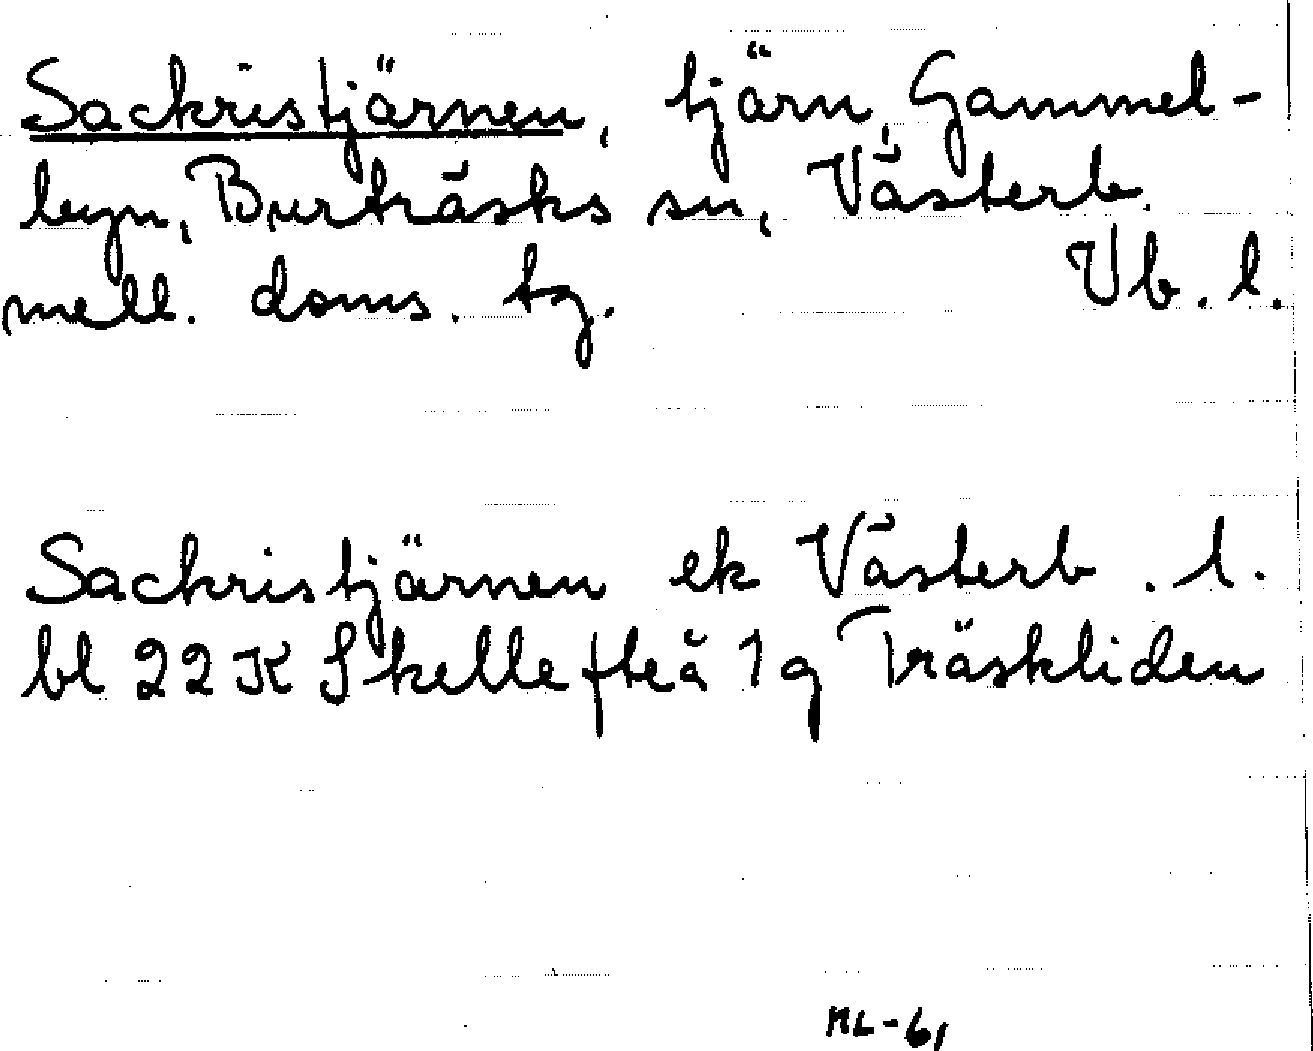 Sackristjärnen, tjärn, Gammel-
byn, Burträsks sn, Västerb.
mell. doms. tg. Vb. l.
Sackristjärnen ek Västerb. l.
bl 22K Skellefteå 1g Träskliden
ML-61